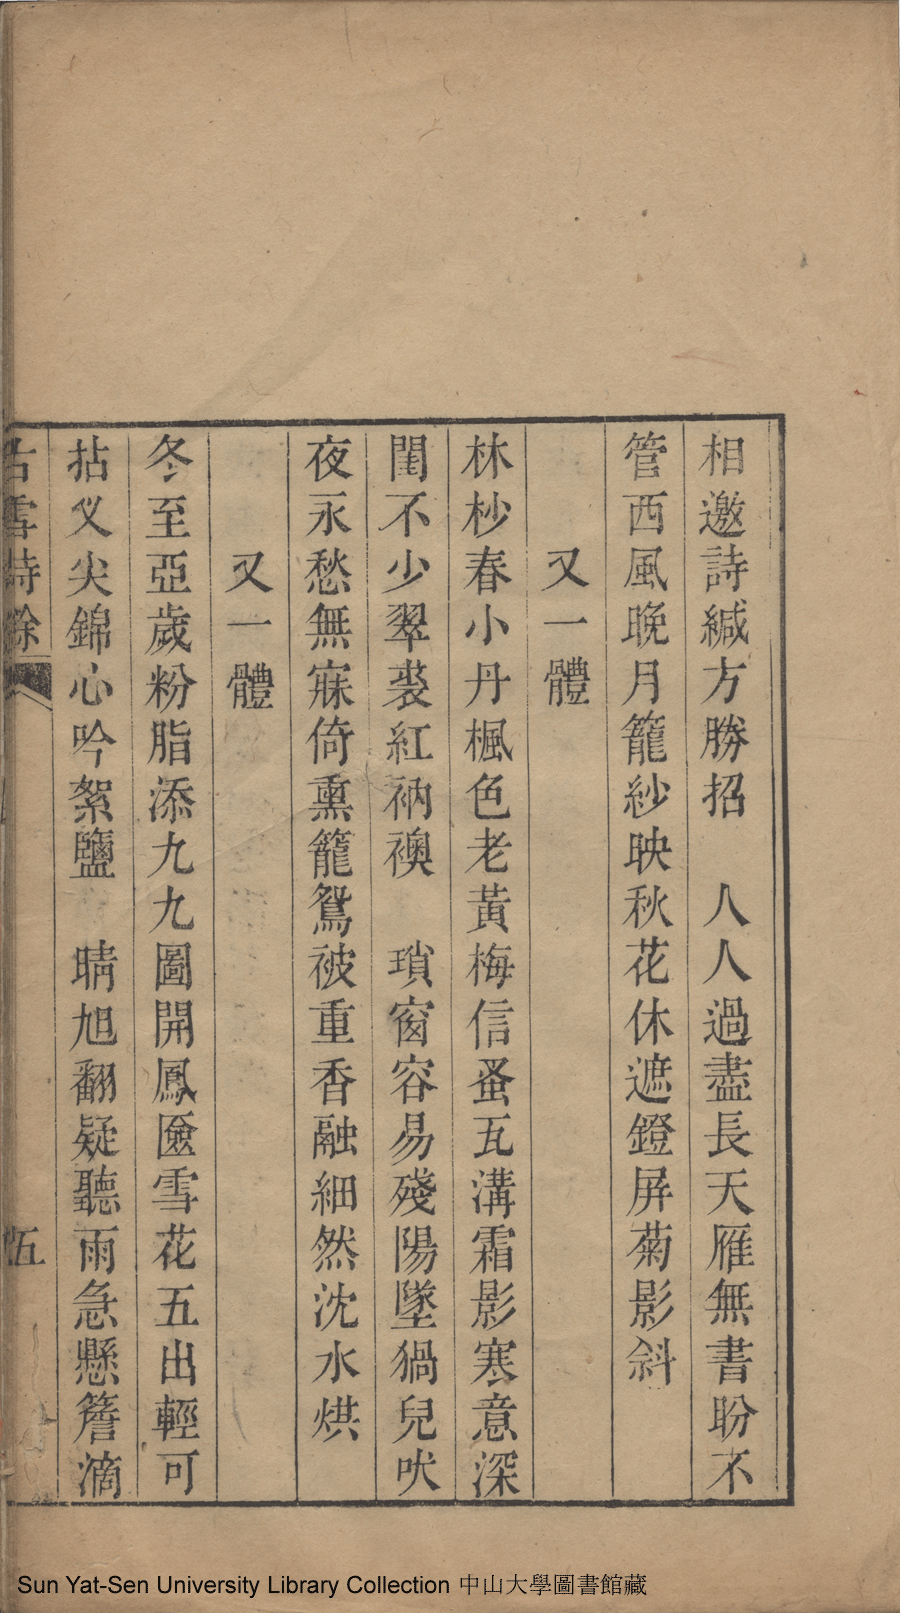 相邀詩緘方勝招　人人過盡長天雁無書盼不
管西風晚月籠紗映秋花休遮鐙屏菊影斜
又一體
林杪春小丹楓色老黃梅信蚤瓦溝霜影寒意深
閨不少翠裘紅衲襖　瑣窗容易殘陽墜猧兒吠
夜永愁無寐倚熏籠鴛被重香融細然沈水烘
又一體
冬至亞歲粉脂添九九圖開鳳匳雪花五出輕可
拈叉尖錦心吟絮鹽　晴旭翻疑聽雨急懸簷滴
古雪詩餘
五
Sun Yat-Sen University Library Collection 中山大學圖書館藏